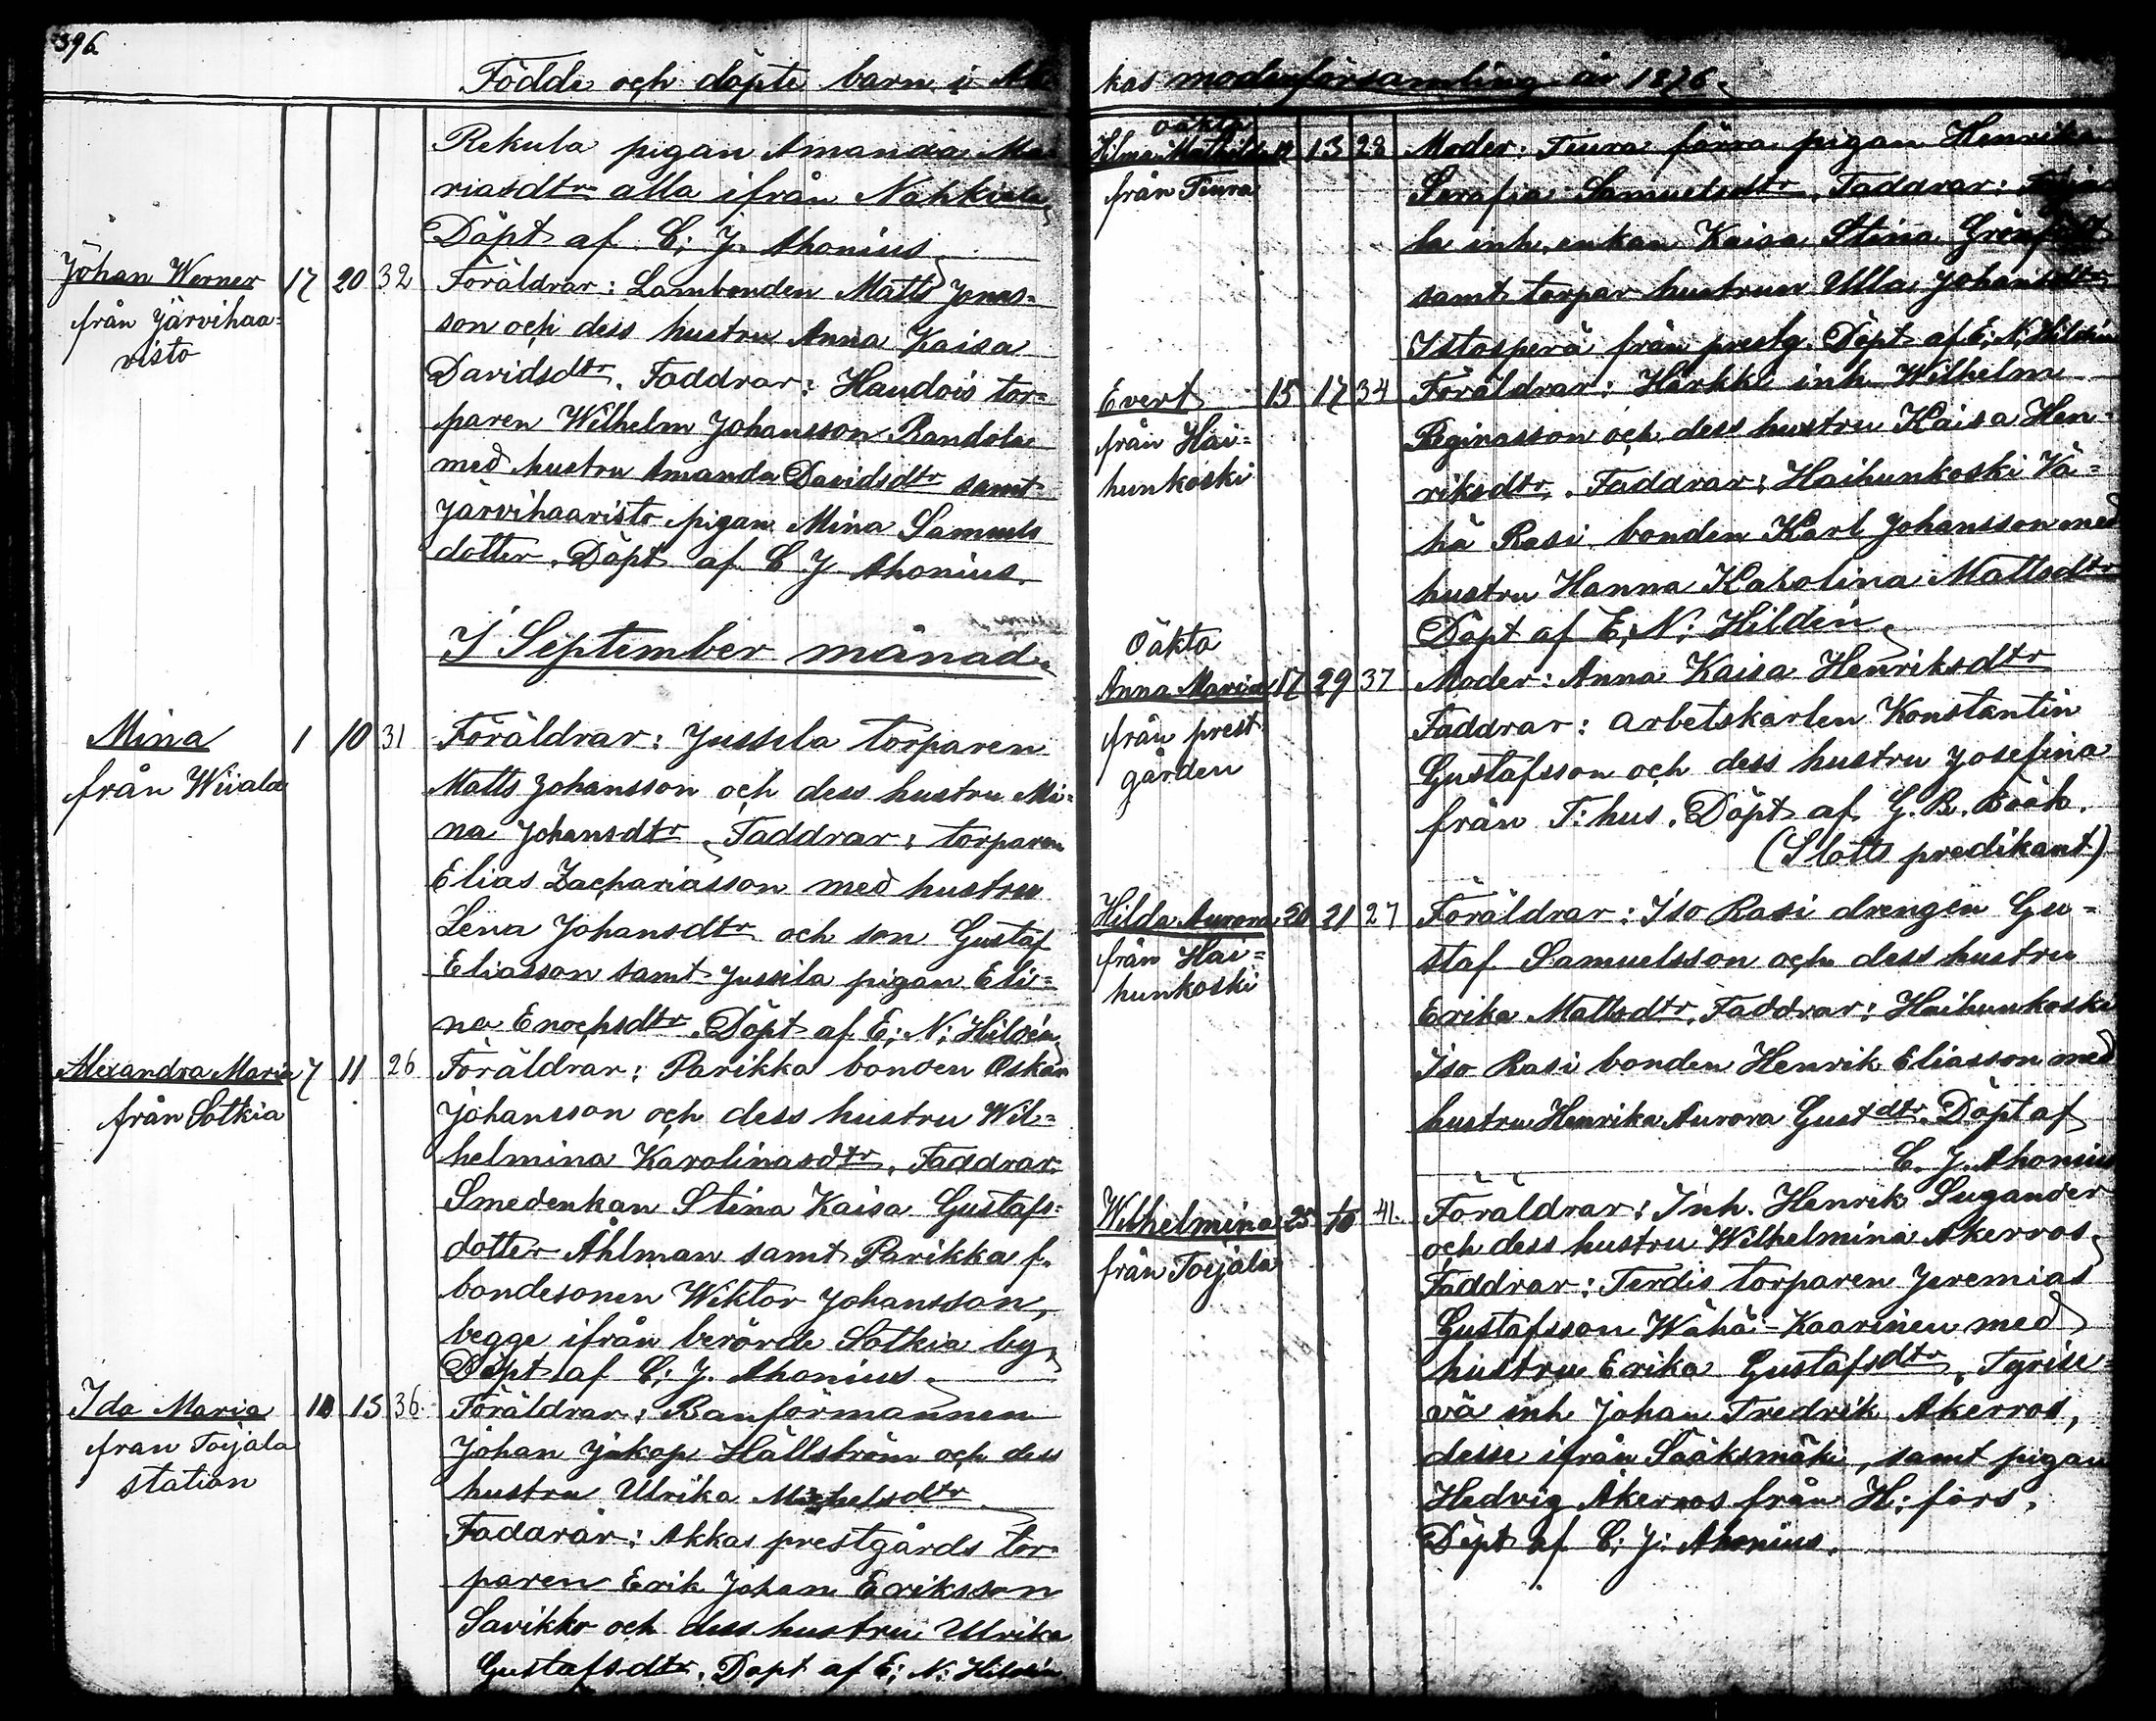 396.
Födde och döpte barn i Ak
Rekula pigan Amanda Ma-
riasdtr alla ifrån Nahkiala,
Döpt af C; J. Ahonius
Johan Werner 17 20 32 Föräldrar: Lambonden Matts Jonas=
från Järvihaa= son och dess hustru Anna Kaisa
risto Davidsdtr. Faddrar: Haudois tor=
paren Wilhelm Johansson Randola
med hustru Amanda Davidsdtr samt
Järvihaaristo pigan Mina Samuels
dotter. Döpt af C J Ahonius.
I September månad.
Mina 1 10 31 Föräldrar: Jussila torparen
från Wiiala Matts Johansson och dess hustru Mi=
na Johansdtr. Faddrar: torparen
Elias Zachariasson med hustru
Lena Johansdtr och son Gustaf
Eliasson samt Jussila pigan Eli=
na Enochsdtr. Döpt af E; N; Hildén
Alexandra Maria 7 11 26 Föräldrar: Parikka bonden Oskar
från Sotkia Johansson och dess hustru Wil=
helmina Karolinasdtr. Faddrar:
Smedenkan Stina Kaisa Gustafs=
dotter Åhlman samt Parikka f.
bondesonen Wiktor Johansson,
begge ifrån berörde Sotkia by,
Döpt af C; J. Ahonius.
Ida Maria 10 15 36. Föräldrar: Banförmannen
från Toijala Johan Jakop Hällström och dess
station hustru Ulrika Michelsdtr
Faddrar: Akkas prestgårds tor-
paren Erik Johan Eriksson
Savikko och dess hustru Ulrika
Gustafsdtr. Döpt af E; N; Hildén
kas moderförsamling år 1876.
oäkta
Hilma Mathilda 13 28 Moder: Tiura förra pigan Henrika
från Tiura Serafia Samuelsdtr. Faddrar:
la inh. enkan Kaisa Stina
samt torpar hustrun Ulla Johansdtr
Istosperä från prestg. Döpt af E; N; Hildén
Evert 15 17 34 Föräldrar: Harkki inh. Wilhelm
från Hai= Reginasson och dess hustru Kaisa Hen=
hunkoski riksdtr. Faddrar: Haihunkoski Vä=
hä Rasi bonden Karl Johansson med
hustru Hanna Karolina Mattsdtr
Döpt af E; N; Hildén
Oäkta
Anna Maria 17 29 37 Moder: Anna Kaisa Henriksdtr
från prest Faddrar: arbetskarlen Konstantin
gården Gustafsson och dess hustru Josefina
från T: hus. Döpt af G. R. Bååk.
(Slotts predikant)
Hilda Aurora 20 21 27 Föräldrar: Iso Rasi drengen Gu=
från Hai= staf Samuelsson och dess hustru
hunkoski Erika Mattsdtr. Faddrar: Haihunkoski
Iso Rasi bonden Henrik Eliasson med
hustru Henrika Aurora Gustdtr. Döpt af
C. J. Ahonius
Wilhelmina 25 10 41. Föräldrar: Inh. Henrik Sugander
från Toijala och dess hustru Wilhelmina Akerros.
Faddrar: Terdis torparen Jeremias
Gustafsson Wähä-Kaarinen med
hustru Erika Gustafsdtr, Tyrise=
vä inh Johan Fredrik Akerros,
desse ifrån Sääksmäki, samt pigan
Hedvig Åkerros från H: fors.
Döpt af C; J; Ahonius.